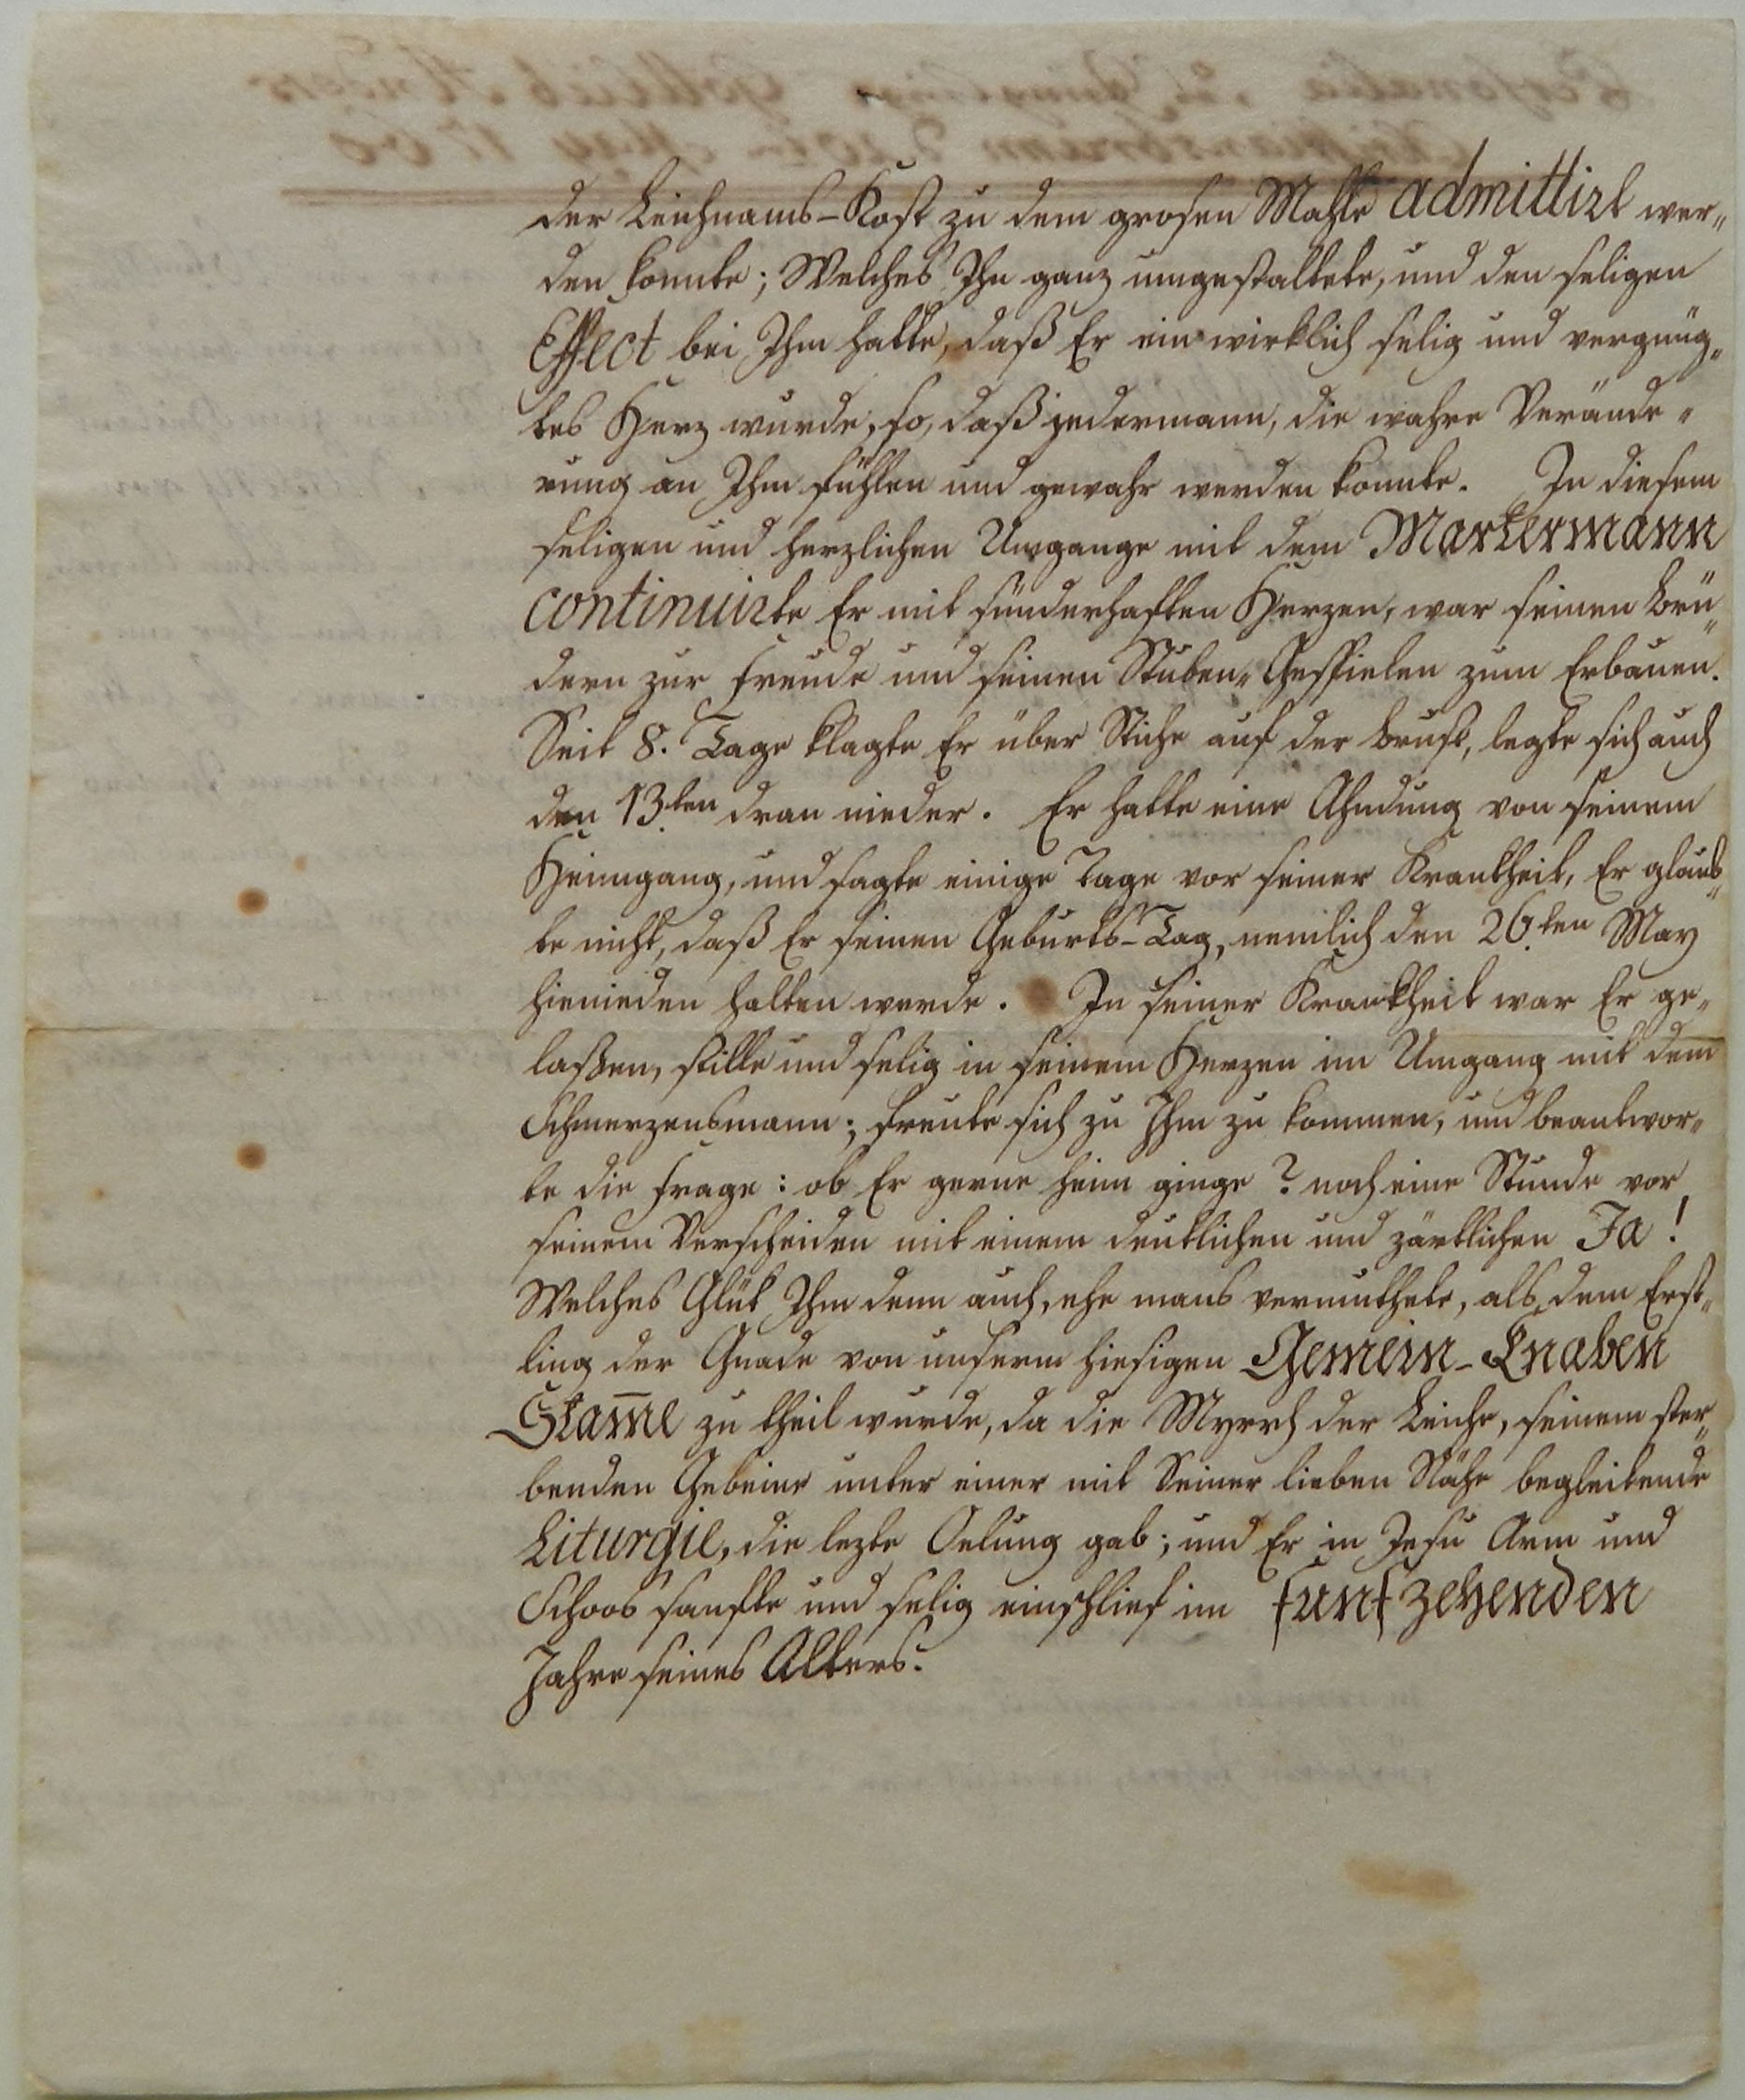 der Leichnams-Kost zu dem grosen Mahle admittirt wer„
den konnte; Welches Ihn ganz umgestaltete, und den seligen
Effect bei Ihm hatte, daß Er ein wirklich selig und vergnüg„
tes Herz wurde, so, daß jedermann, die wahre Verände„
rung an Ihm fühlen und gewahr werden konnte. In diesem
seligen und herzlichen Umgange mit dem Martermann
continuirte Er mit sünderhaften Herzen, war seinen Brü„
dern zur Freude und seinen Stuben„Gespielen zum Erbauen.
Seit 8. Tage klagte Er über Stiche auf der Brust, legte sich auch
den 13ten dran nieder. Er hatte eine Ahndung von seinem
Heimgang, und sagte einige Tage vor seiner Krankheit, Er glaub„
te nicht, daß Er seinen Geburts-Tag, nemlich den 26ten May
hienieden halten werde. In seiner Krankheit war Er ge„
laßen, stille und selig in seinem Herzen im Umgang mit dem
Schmerzensmann; freute sich zu Ihm zu kommen, und beantwor„
te die Frage: ob Er gerne heim ginge? noch eine Stunde vor
seinem Verscheiden mit einem deutlichen und zärtlichen Ja!
Welches Glük Ihm denn auch, ehe mans vermuthete, als dem Erst„
ling der Gnade von unserm hiesigen Gemein-Knaben
Stam̅e zu theil wurde, da die Myrrh der Leiche, seinem ster„
benden Gebeine unter einer mit Seiner lieben Nähe begleitende
Liturgie, die lezte Oelung gab; und Er in Jesu Arm und
Schoos sanfte und selig einschlief im funfzehenden
Jahre seines Alters.